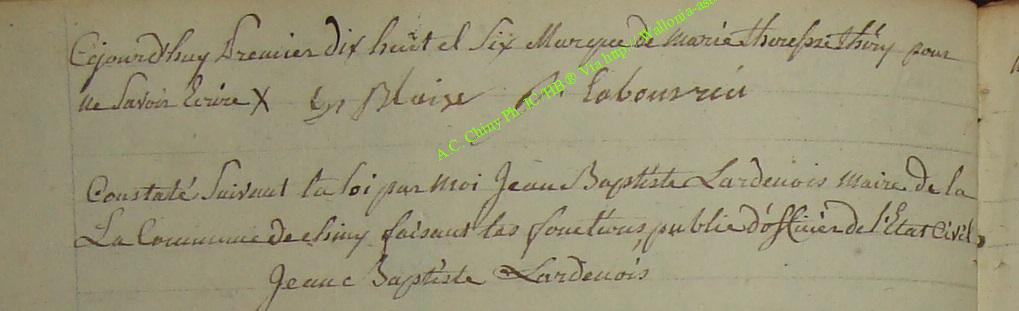 Cejourdhuy Premier dix huit et Six Marque de Marie theresse thiry pour
ne Savoir Ecrire X Blaise Labourieu
Constaté Suivant la loi par moi Jean Baptiste Lardenois maire de la
La Commune de chiny faisant les fonctions publie d'officier de l'Etat Civil
Jean Baptiste Lardenois
A.C. Chiny Ph. JC HB ® Via http://Wallonia-as